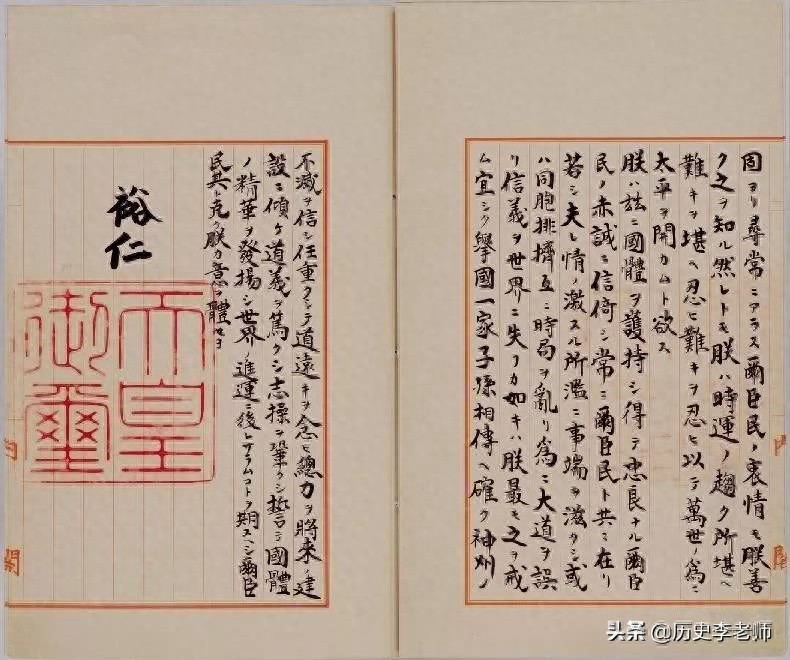 固ヨリ尋常ニアラス爾臣民ノ衷情モ朕善
ク之ヲ知ル然レトモ朕ハ時運ノ趨ク所堪ヘ
難キヲ堪ヘ忍ヒ難キヲ忍ヒ以テ萬世ノ爲ニ
太平ヲ開カムト欲ス
朕ハ茲ニ國體ヲ護持シ得テ忠良ナル爾臣
民ノ赤誠ニ信倚シ常ニ爾臣民ト共ニ在リ
若シ夫レ情ノ激スル所濫ニ事端ヲ滋クシ或
ハ同胞排擠互ニ時局ヲ亂リ爲ニ大道ヲ誤
リ信義ヲ世界ニ失フカ如キハ朕最モ之ヲ戒
ム宜シク擧國一家子孫相傳ヘ確ク神州ノ
不滅ヲ信シ任重クシテ道遠キヲ念ヒ總力ヲ將來ノ建
設ニ傾ケ道義ヲ篤クシ志操ヲ鞏クシ誓テ國體
ノ精華ヲ發揚シ世界ノ進運ニ後レサラムコトヲ期スヘシ爾臣
民其レ克ク朕カ意ヲ體セヨ
裕仁
天皇
御璽
头条 @历史李老师